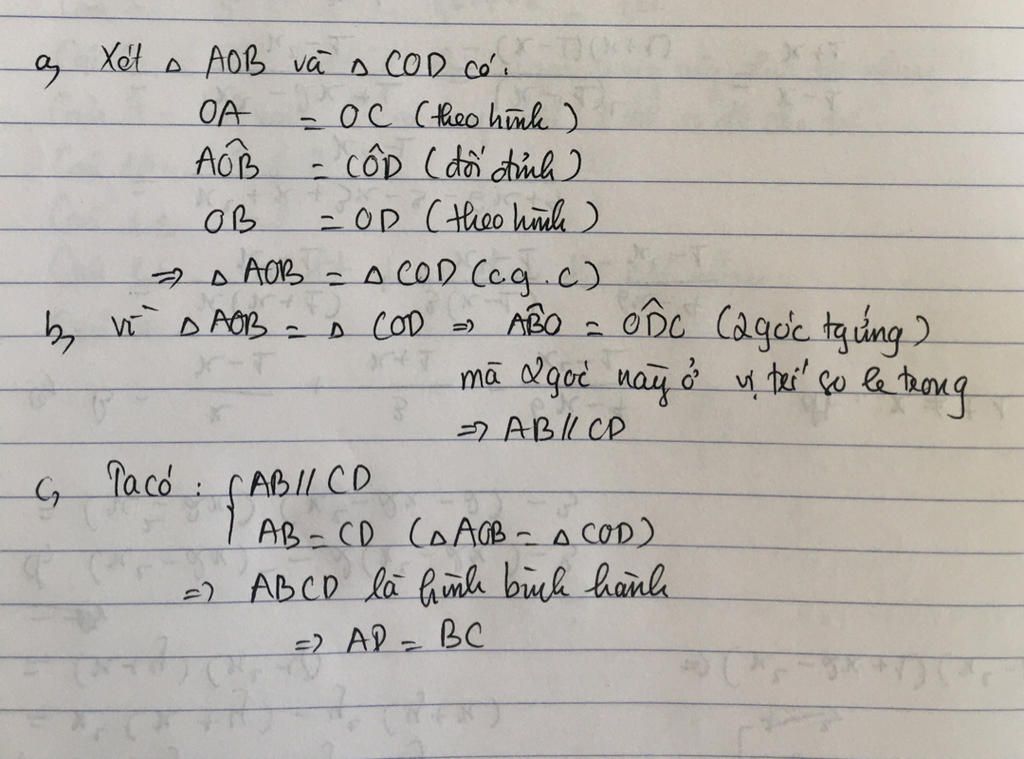 a, Xét △ AOB và △ COD có:
OA = OC (theo hình)
AÔB = CÔD (đối đỉnh)
OB = OD (theo hình)
=> △ AOB = △ COD (c.g.c)
b, vì △ AOB = △ COD => AB̂O = OD̂C (2 góc tg ứng)
mà 2 góc này ở vị trí so le trong
=> AB // CD
c, Ta có: { AB // CD
AB = CD (△ AOB = △ COD)
=> ABCD là hình bình hành
=> AD = BC